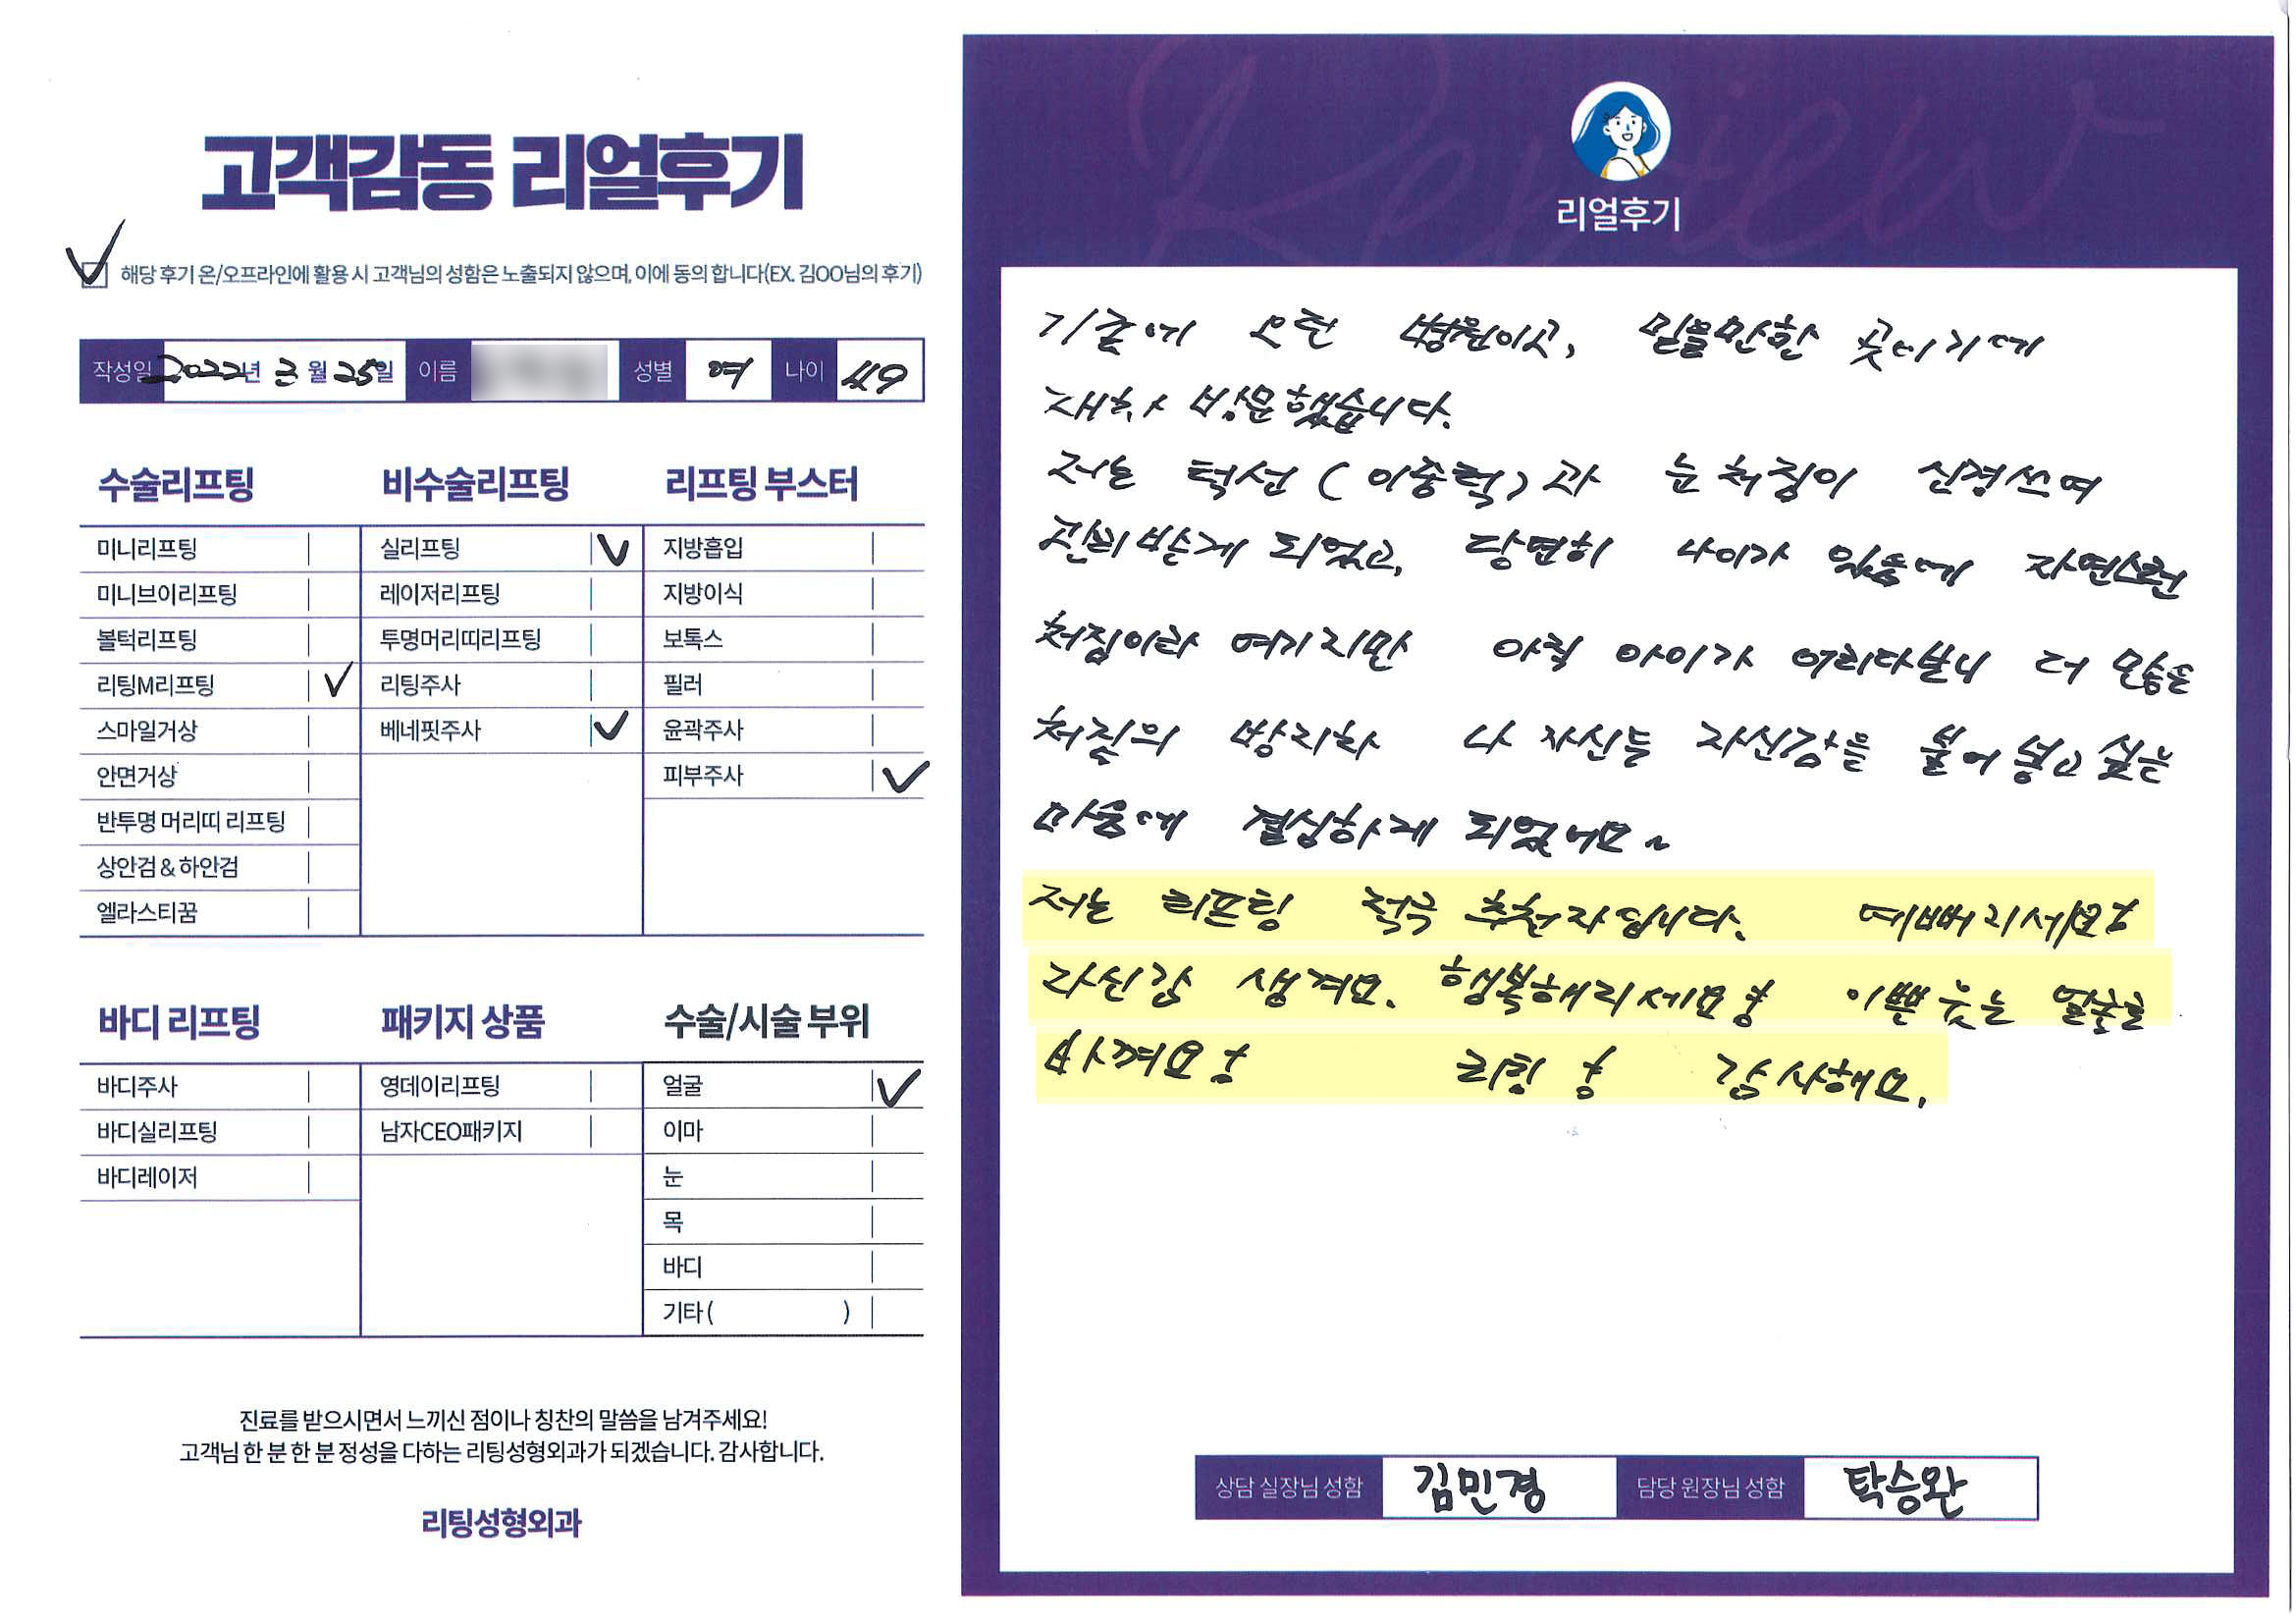 고객감동 리얼후기
해당 후기 온/오프라인에 활용 시 고객님의 성함은 노출되지 않으며, 이에 동의 합니다(EX. 김OO님의 후기)
작성일 2022년 3월 25일 이름 성별 여 나이 49
수술리프팅
미니리프팅
미니브이리프팅
볼턱리프팅
리팅M리프팅
스마일거상
안면거상
반투명 머리띠 리프팅
상안검 & 하안검
엘라스티꿈
비수술리프팅
실리프팅
레이저리프팅
투명머리띠리프팅
리팅주사
베네핏주사
리프팅 부스터
지방흡입
지방이식
보톡스
필러
윤곽주사
피부주사
바디 리프팅
바디주사
바디실리프팅
바디레이저
패키지 상품
영데이리프팅
남자CEO패키지
수술/시술 부위
얼굴
이마
눈
목
바디
기타 ( )
진료를 받으시면서 느끼신 점이나 칭찬의 말씀을 남겨주세요!
고객님 한 분 한 분 정성을 다하는 리팅성형외과가 되겠습니다. 감사합니다.
리팅성형외과
Review
리얼후기
기존에 오던 병원이고, 믿을만한 곳이기에
재차 방문했습니다.
저는 턱선 (이중턱)과 눈 처짐이 신경쓰여
관리받게 되었고, 당연히 나이가 있음에 자연스런
처짐이라 여기지만 아직 아이가 어리다보니 더 많은
처짐의 방지와 나 자신을 자신감을 불어 넣고 싶은
마음에 결심하게 되었어요~
저는 리프팅 적극 추천자입니다. 예뻐지세요
자신감 생겨요. 행복해지세요 이쁜 웃는 얼굴로
바껴요 리팅 감사해요.
상담 실장님 성함 김민경 담당 원장님 성함 탁승완